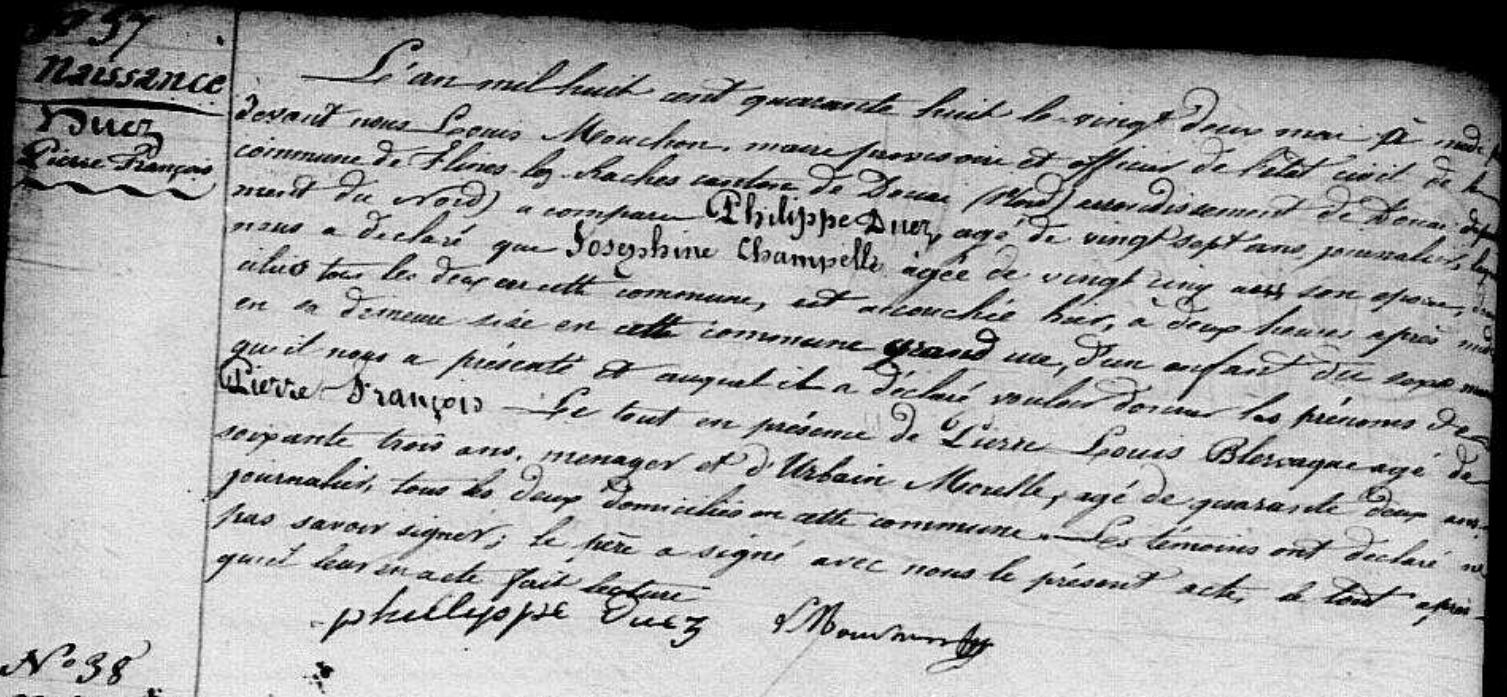 No 37
Naissance
Duez
Pierre François
L'an mil huit cent quarante huit le vingt deux mai à midi
devant nous Louis Mouchon, maire provisoire et officier de l'état civil de la
commune de Flines-lez-Raches canton de Douai (Nord) arrondissement de Douai dépar
ment du Nord) a comparu Philippe Duez, agé de vingt sept ans, journalier, lequel
nous a declaré que Josephine Champelle agée de vingt cinq ans son epouse, dom
ciliés tous les deux en cette commune, est accouchée hier, à deux heures après midi
en sa demeure sise en cette commune grand rue, d'un enfant du sexe mas
qu'il nous a présenté et auquel il a déclaré vouloir donner les prénoms de
Pierre François Le tout en présence de Pierre Louis Blervaque agé de
soixante trois ans, menager et d'Urbain Morelle, agé de quarante deux ans
journalier, tous les deux domiciliés en cette commune. Les témoins ont déclaré ne
pas savoir signer; le père a signé avec nous le présent acte, le tout après
qu'il leur en acte fait lecture
phillippe Duez LMouchon
No 38